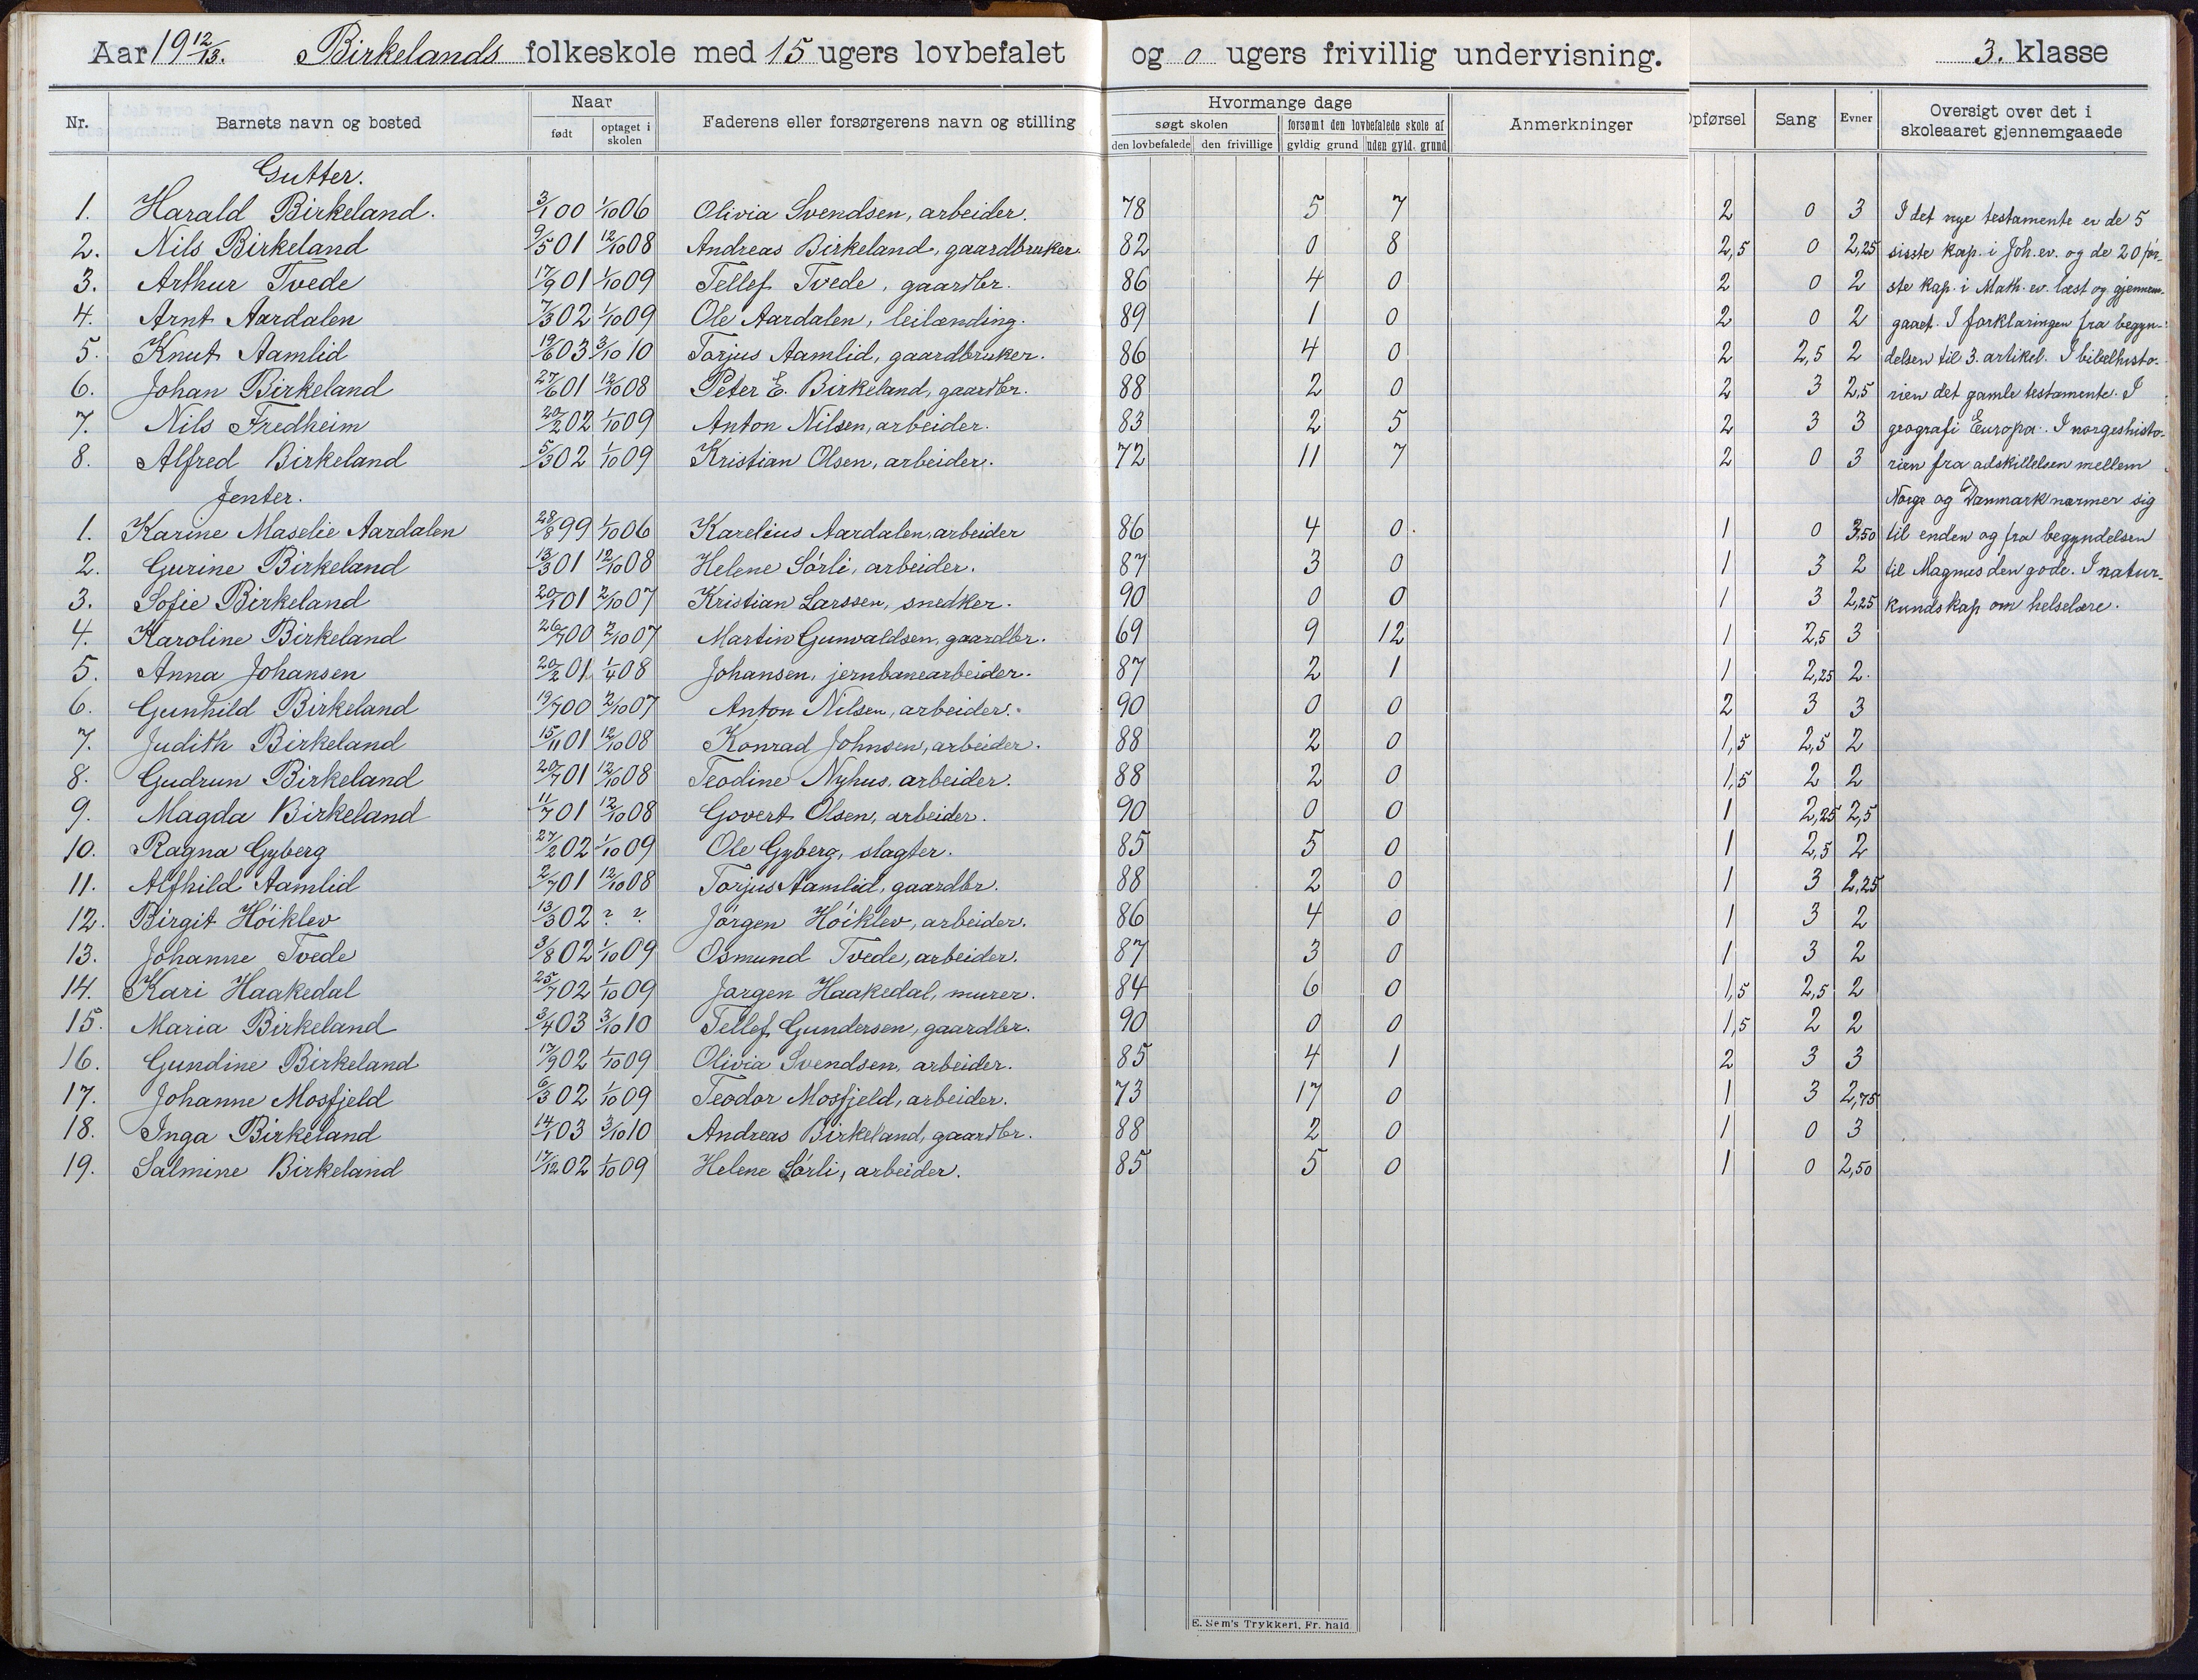 Aar 19 12/13. Birkelands folkeskole med 15 ugers lovbefalet og 0 ugers frivillig undervisning. 3. klasse
Nr. Barnets navn og bosted Naar født optaget i skolen Faderens eller forsørgerens navn og stilling Hvormange dage søgt skolen den lovbefalede den frivillige forsømt den lovbefalede skole af gyldig grund uden gyld. grund Anmerkninger Opførsel Sang Evner Oversigt over det i skoleaaret gjennemgaaede
Gutter.
1. Harald Birkeland. 3/1 00 1/10 06 Olivia Svendsen, arbeider. 78 5 7 2 0 3 I det nye testamente er de 5
2. Nils Birkeland 9/5 01 12/10 08 Andreas Birkeland, gaardbruker. 82 0 8 2,5 0 2,25 sisste kap. i Joh. ev. og de 20 før-
3. Arthur Tvede 17/9 01 1/10 09 Tellef Tvede, gaardbr. 86 4 0 2 0 2 ste kap. i Math. ev. læst og gjennem-
4. Arnt Aardalen 7/3 02 1/10 09 Ole Aardalen, leilænding. 89 1 0 2 0 2 gaaet. I forklaringen fra begyn-
5. Knut Aamlid 19/6 03 3/10 10 Torjus Aamlid, gaardbruker. 86 4 0 2 2,5 2 delsen til 3. artikel. I bibelhisto-
6. Johan Birkeland 27/6 01 12/10 08 Peter E. Birkeland, gaardbr. 88 2 0 2 3 2,5 rien det gamle testamente. I
7. Nils Fredheim 20/2 02 1/10 09 Anton Nilsen, arbeider. 83 2 5 2 3 3 geografi Europa. I norgeshisto-
8. Alfred Birkeland 5/3 02 1/10 09 Kristian Olsen, arbeider. 72 11 7 2 0 3 rien fra adskillelsen mellem
Jenter. Norge og Danmark nærmer sig
1. Karine Maselie Aardalen 28/8 99 1/10 06 Karelius Aardalen, arbeider 86 4 0. 1 0 3,50 til enden og fra begyndelsen
2. Gurine Birkeland 13/3 01 12/10 08 Helene Sørli, arbeider. 87 3 0 1 3 2 til Magnus den gode. I natur-
3. Sofie Birkeland 20/1 01 2/10 07 Kristian Larssen, snedker. 90 0 0 1 3 2,25 kundskap om helselære.
4. Karoline Birkeland 26/7 00 2/10 07 Martin Gunvaldsen, gaardbr. 69 9 12 1 2,5 3
5. Anna Johansen 20/2 01 1/4 08 Johansen, jernbanearbeider. 87 2 1 1 2,25 2.
6. Gunhild Birkeland 19/7 00 2/10 07 Anton Nilsen, arbeider. 90 0 0 2 3 3
7. Judith Birkeland 15/11 01 12/10 08 Konrad Johnsen, arbeider. 88 2 0 1,5 2,5 2
8. Gudrun Birkeland 20/7 01 12/10 08 Teodine Nyhus, arbeider. 88 2 0 1,5 2 2
9. Magda Birkeland 11/7 01 12/10 08 Govert Olsen, arbeider. 90 0 0 1 2,25 2,5
10. Ragna Gyberg 27/2 02 1/10 09 Ole Gyberg, slagter. 85 5 0 1 2,5 2
11. Alfhild Aamlid 2/7 01 12/10 08 Torjus Aamlid, gaardbr. 88 2 0 1 3 2,25
12. Birgit Høiklev 13/3 02 ? ? Jørgen Høiklev, arbeider. 86 4 0 1 3 2
13. Johanne Tvede 3/8 02 1/10 09 Osmund Tvede, arbeider. 87 3 0 1 3 2
14. Kari Haakedal 25/7 02 1/10 09 Jørgen Haakedal, murer. 84 6 0 1,5 2,5 2
15. Maria Birkeland 3/4 03 3/10 10 Tellef Gundersen, gaardbr. 90 0 0 1,5 2 2
16. Gundine Birkeland 17/9 02 1/10 09 Olivia Svendsen, arbeider. 85 4 1 2 3 3
17. Johanne Mosfjeld 6/3 02 1/10 09 Teodor Mosfjeld, arbeider. 73 17 0 1 3 2,75
18. Inga Birkeland 14/1 03 3/10 10 Andreas Birkeland, gaardbr. 88 2 0 1 0 3
19. Salmine Birkeland 17/12 02 1/10 09 Helene Sørli, arbeider. 85 5 0 1 0 2,50
E. Sem's Trykkeri, Fr. hald